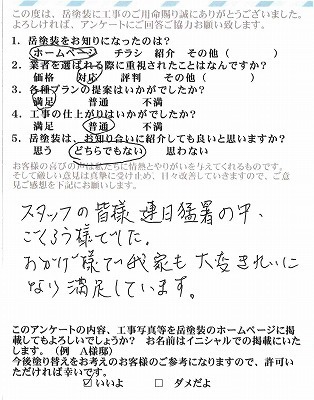 この度は、岳塗装に工事のご用命賜り誠にありがとうございました。
よろしければ、アンケートにご回答ご協力お願い致します。
1. 岳塗装をお知りになったのは?
ホームページ チラシ 紹介 その他( )
2. 業者を選ばれる際に重視されたことはなんですか?
価格 対応 評判 その他( )
3. 各種プランの提案はいかがでしたか?
満足 普通 不満
4. 工事の仕上がりはいかがでしたか?
満足 普通 不満
5. 岳塗装は、お知り合いに紹介しても良いと思いますか?
思う どちらでもない 思わない
お客様の喜びの声は私たちに情熱とやりがいを与えてくれるものです。
そして厳しい意見は真摯に受け止め、日々改善していきますので、ご意
見ご感想を下記にお願いします。
スタッフの皆様 連日猛暑の中、
ごくろう様でした。
おかげ様で我家も大変きれいに
なり満足しています。
このアンケートの内容、工事写真等を岳塗装のホームページに掲
載してもよろしいでしょうか? お名前はイニシャルでの掲載にいた
します。(例 A様邸)
今後塗り替えをお考えのお客様のご参考になりますので、許可い
ただければ幸いです。
☑ いいよ □ ダメだよ